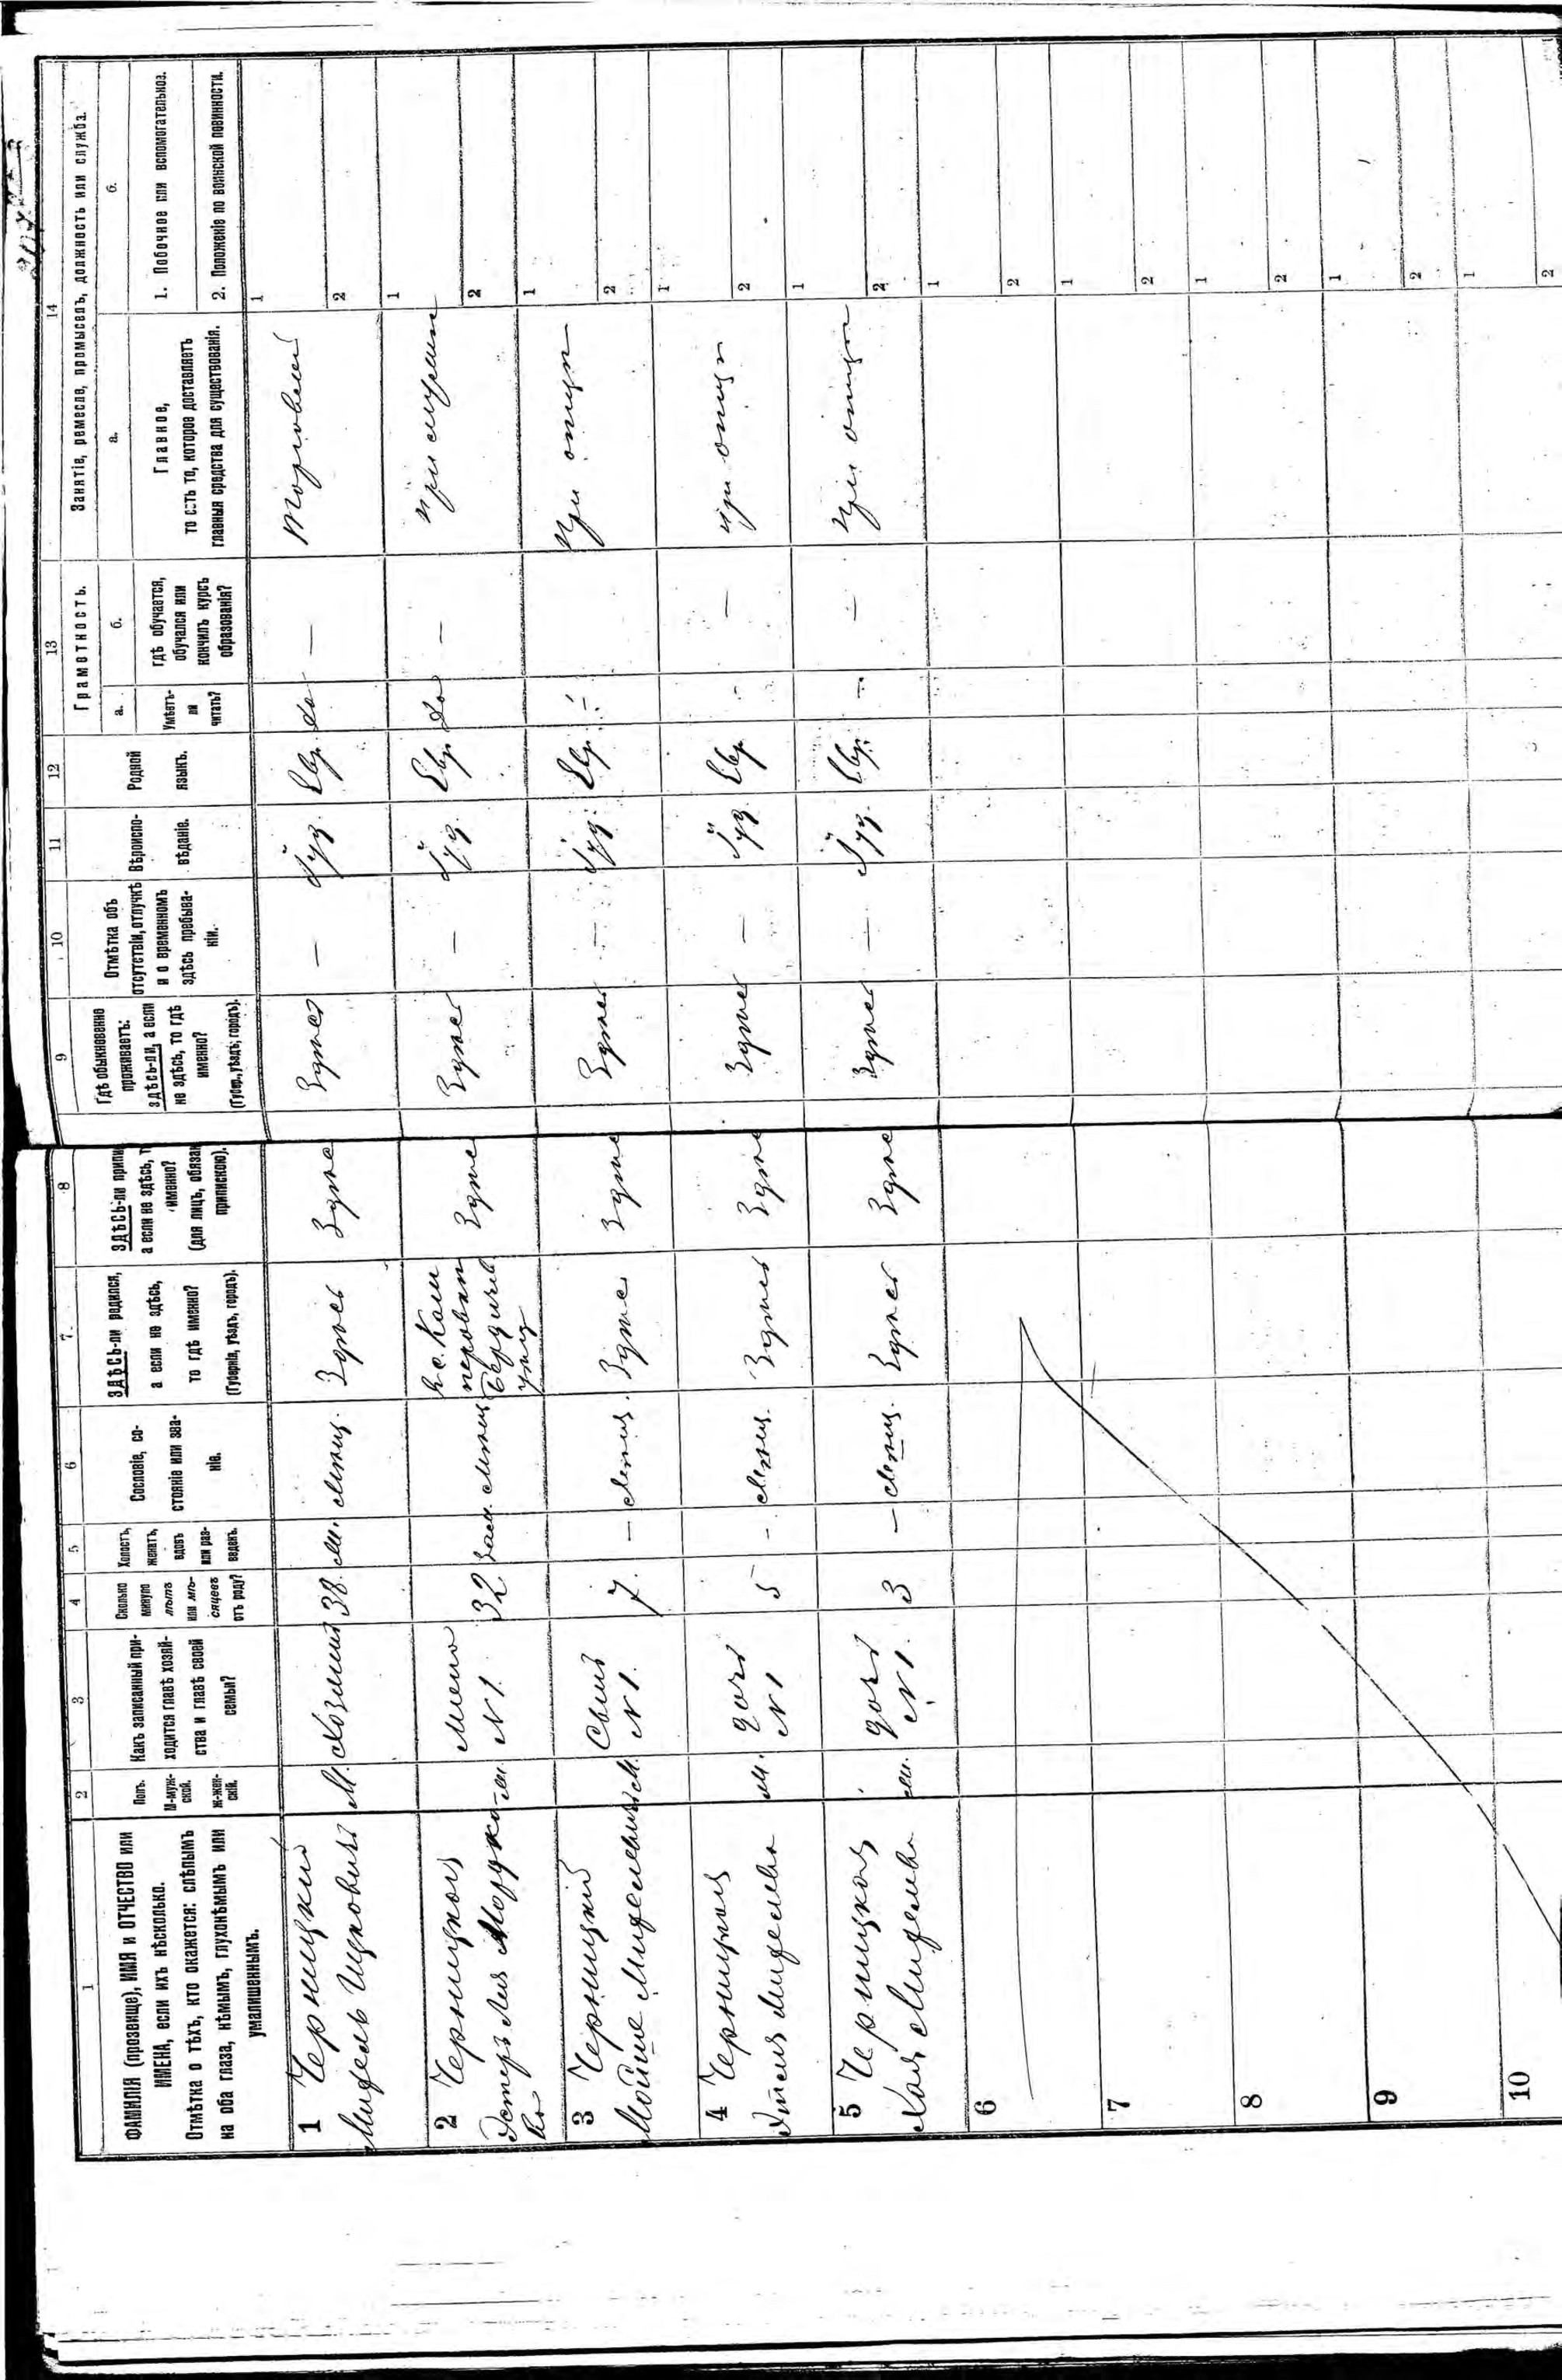 1
ФАМИЛІЯ (прозвище), ИМЯ и ОТЧЕСТВО или
ИМЕНА, если ихъ нѣсколько.
Отмѣтка о тѣхъ, кто окажется: слѣпымъ
на оба глаза, нѣмымъ, глухонѣмымъ или
умалишеннымъ.
2
Полъ.
М-муж-
ской.
Ж-жен-
скій.
3
Какъ записанный при-
ходится главѣ хозяй-
ства и главѣ своей
семьи?
4
Сколько
минуло
лѣтъ
или мѣ-
сяцевъ
отъ роду?
5
Холостъ,
женатъ,
вдовъ
или раз-
веденъ.
6
Сословіе, со-
стояніе или зва-
ніе.
7.
ЗДѢСЬ-ли родился,
а если не здѣсь,
то гдѣ именно?
(Губернія, уѣздъ, городъ).
8
ЗДѢСЬ-ли припи
а если не здѣсь, т
именно?
(для лицъ, обязан
припискою).
9
Гдѣ обыкновенно
проживаетъ:
здѣсь-ли, а если
не здѣсь, то гдѣ
именно?
(Губер., уѣздъ, городъ).
10
Отмѣтка объ
отсутствіи, отлучкѣ
и о временномъ
здѣсь пребыва-
ніи.
11
Вѣроиспо-
вѣданіе.
12
Родной
языкъ.
13
Грамотность.
а.
Умѣетъ-
ли
читать?
б.
гдѣ обучается,
обучался или
кончилъ курсъ
образованія?
14
Занятіе, ремесло, промыселъ, должность или служба.
а.
Главное,
то есть то, которое доставляетъ
главныя средства для существованія.
б.
1. Побочное или вспомогательное.
2. Положеніе по воинской повинности.
1 Черницкий
Мидель Ицковичъ
М.
Хозяинъ
38.
мѣщ.
Здѣсь
Здѣсь
Здѣсь
—
Іуд.
Евр.
да
—
Торговлей
1
2
2 Черницкая
Эстеръ Лея Мордко-
ва
Жена
N 1.
32
зам.
мѣщ.
Бердичев
Здѣсь
Здѣсь
—
Іуд.
Евр.
да
—
при мужѣ
1
2
3 Черницкий
Мойше Миделевичъ
М.
Сынъ
N 1.
7.
—
мѣщ.
Здѣсь
Здѣсь
Здѣсь
—
Іуд.
Евр.
—
При отцѣ
1
2
4 Черницкая
Миделева
дочь
N 1
5
-
мѣщ.
Здѣсь
Здѣсь
Здѣсь
—
Іуд.
Евр.
-
—
при отцѣ
1
2
5 Черницкая
Хая Миделева
дочь
N 1.
3
—
мѣщ.
Здѣсь
Здѣсь
Здѣсь
—
Іуд.
Евр.
—
—
При отцѣ
1
2
6
1
2
7
1
2
8
1
2
9
1
2
10
1
2